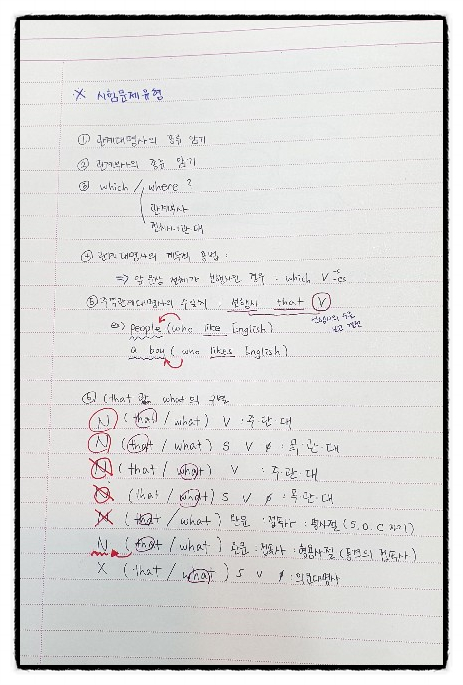 X 시험문제유형
① 관계대명사의 종류 암기
② 관계부사의 종류 암기
③ which / where ?
관계부사
전치사+관·대
④ 관계대명사의 계속적 용법 :
⇒ 앞 문장 전체가 선행사인 경우 - which V-s -es
⑤ 주격관계대명사의 수일치 : 선행사 that V
선행사의 수를 보고 결정
ex) people (who like English)
a boy (who likes English)
⑥ (that 과 what 의 구별
N (that / what) V : 주·관·대
N (that / what) S V ∅ : 목·관·대
N (that / what) V : 주·관·대
N (that / what) S V ∅ : 목·관·대
N (that / what) 완문 : 접속사 : 명사절 (S.O.C 자리)
N (that / what) 완문 : 접속사 : 형용사절 (동격의 접속사)
X (that / what) S V ∅ : 의문대명사